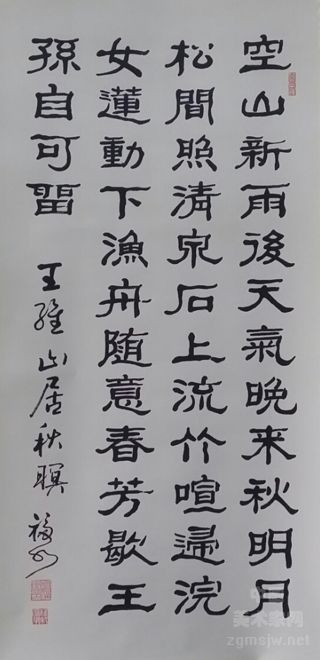 空山新雨後天氣晚来秋明月
松間照清泉石上流竹喧歸浣
女蓮動下漁舟随意春芳歇王
孫自可留
王維山居秋暝
美术家网
zgmsjw.net